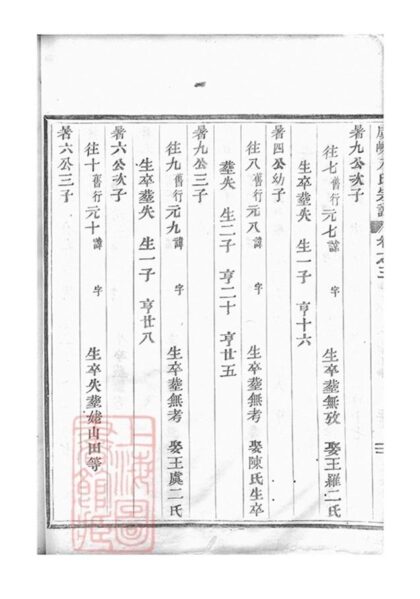 氏宗譜 卷之三
暑九公次子
往七舊行元七諱 字 生卒塟無攷 娶王羅二氏
生卒塟失 生一子 亨十六
暑四公幼子
往八舊行元八諱 字 生卒塟無考 娶陳氏生卒
塟失 生二子 亨二十 亨廿五
暑九公三子
往九舊行元九諱 字 生卒塟無考 娶王虞二氏
生卒塟失 生一子 亨廿八
暑六公次子
往十舊行元十諱 字 生卒失塟姥山田等
暑六公三子
上海圖書館藏